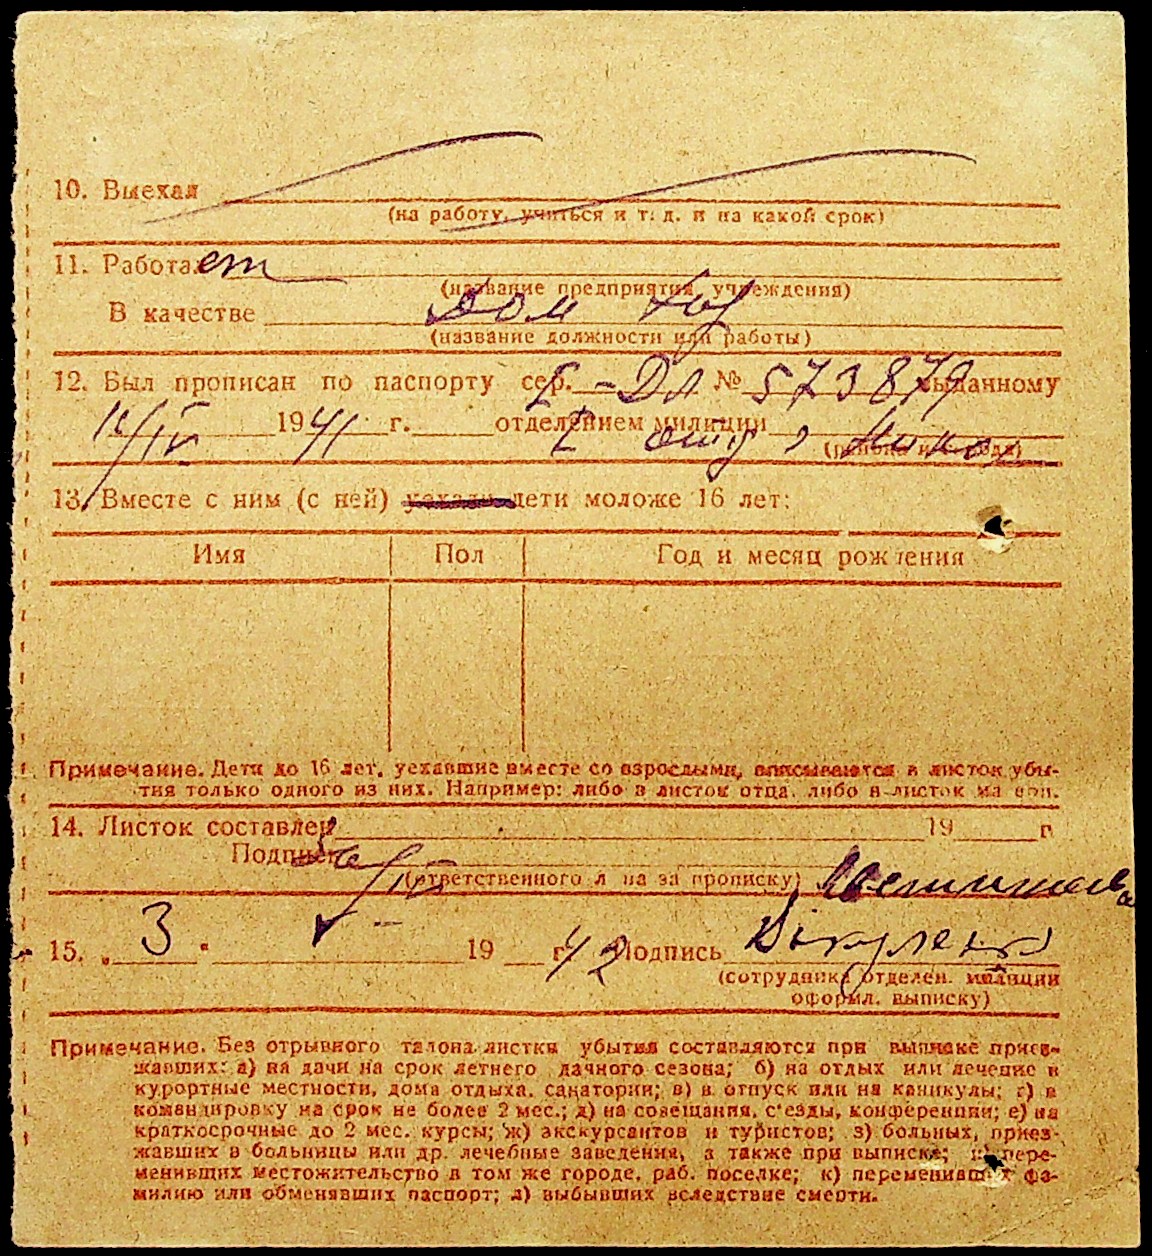 10. Выехал
(на работу, учиться и т. д. и на какой срок)
11. Работает
(название предприятия, учреждения)
В качестве Дом хоз
(название должности или работы)
12. Был прописан по паспорту сер. I-ДЛ № 573879 выданному
1941 г. отделением милиции
2 отд,
(района и города)
13. Вместе с ним (с ней) уехали дети моложе 16 лет:
Имя Пол Год и месяц рождения
Примечание. Дети до 16 лет, уехавшие вместе со взрослыми, вписываются в листок убы-
тия только одного из них. Например: либо в листок отца, либо в листок матери.
14. Листок составлен 19 г.
Подпись
(ответственного лица за прописку)
15. „ 3 “ V 1942 г. Подпись
(сотрудника отделен. милиции
оформл. выписку)
Примечание. Без отрывного талона листки убытия составляются при выписке приез-
жавших: а) на дачи на срок летнего дачного сезона; б) на отдых или лечение в
курортные местности, дома отдыха, санатории; в) в отпуск или на каникулы; г) в
командировку на срок не более 2 мес.; д) на совещания, с'езды, конференции; е) на
краткосрочные до 2 мес. курсы; ж) экскурсантов и туристов; з) больных, приез-
жавших в больницы или др. лечебные заведения, а также при выписке; и) пере-
менивших местожительство в том же городе, раб. поселке; к) переменивших фа-
милию или обменявших паспорт; л) выбывших вследствие смерти.